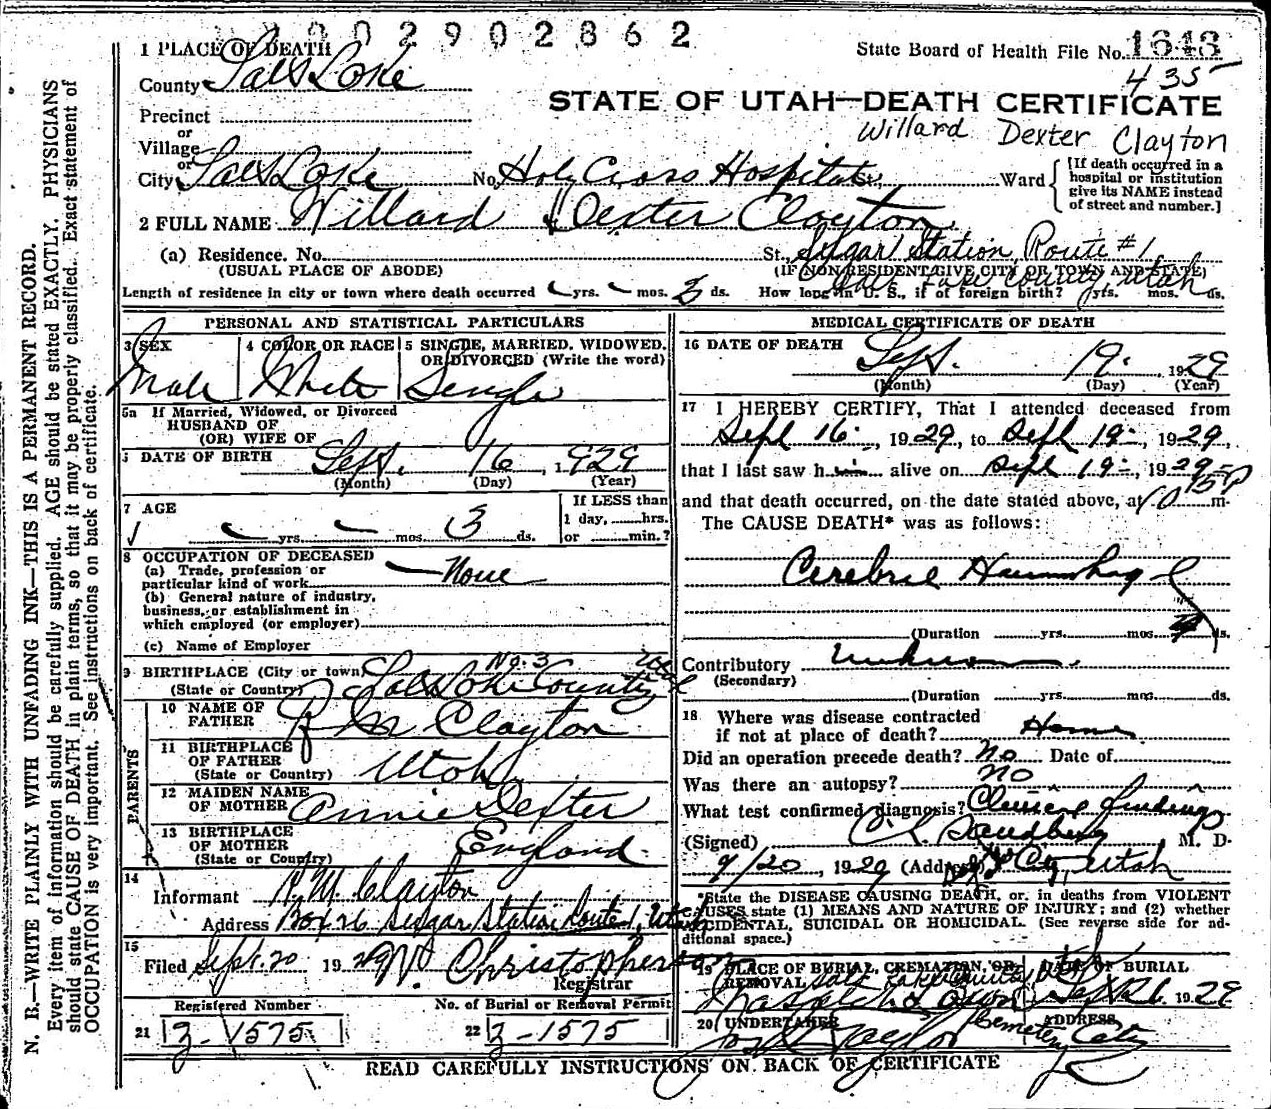 002902862
State Board of Health File No. 1643
435
1 PLACE OF DEATH
County Salt Lake
STATE OF UTAH—DEATH CERTIFICATE
Precinct
or
Village
Willard Dexter Clayton
or
City Salt Lake No. Holy Cross Hospital St., Ward
[If death occurred in a
hospital or institution
give its NAME instead
of street and number.]
2 FULL NAME Willard Dexter Clayton
(a) Residence. No. St., Sugar Station, Route #1
(USUAL PLACE OF ABODE) (IF NONRESIDENT GIVE CITY OR TOWN AND STATE)
Salt Lake County, Utah
Length of residence in city or town where death occurred - yrs. - mos. 3 ds. How long in U. S., if of foreign birth? yrs. mos. ds.
PERSONAL AND STATISTICAL PARTICULARS
3 SEX 4 COLOR OR RACE 5 SINGLE, MARRIED, WIDOWED,
OR DIVORCED (Write the word)
Male White Single
5a If Married, Widowed, or Divorced
HUSBAND OF
(OR) WIFE OF
DATE OF BIRTH Sept. 16, 1929
(Month) (Day) (Year)
7 AGE If LESS than
1 day, hrs.
- yrs. - mos. 3 ds. or min.?
8 OCCUPATION OF DECEASED
(a) Trade, profession or
particular kind of work None
(b) General nature of industry,
business, or establishment in
which employed (or employer)
(c) Name of Employer
9 BIRTHPLACE (City or town) No. 3
(State or Country) Salt Lake County Utah
PARENTS
10 NAME OF
FATHER R M Clayton
11 BIRTHPLACE
OF FATHER
(State or Country) Utah
12 MAIDEN NAME
OF MOTHER Annie Dexter
13 BIRTHPLACE
OF MOTHER
(State or Country) England
14
Informant R. M. Clayton
Address Box 26 Sugar Station Route 1, Utah
15
Filed Sept. 20 1929 W. Christopherson
Registrar
Registered Number No. of Burial or Removal Permit
21 3-1575 22 3-1575
MEDICAL CERTIFICATE OF DEATH
16 DATE OF DEATH
Sept. 19. 1929
(Month) (Day) (Year)
17 I HEREBY CERTIFY, That I attended deceased from
Sept 16, 1929, to Sept 19, 1929,
that I last saw him alive on Sept 19, 1929
and that death occurred, on the date stated above, at 10 15 P m.
The CAUSE DEATH* was as follows:
Cerebral Haemorrhage
(Duration yrs. mos. ds.
Contributory Unknown.
(Secondary)
(Duration yrs. mos. ds.
18 Where was disease contracted
if not at place of death? Home
Did an operation precede death? No Date of
Was there an autopsy? no
What test confirmed diagnosis? Clinical findings
(Signed) C. L. Sandberg M. D.
9/20, 1929 (Address) City, Utah
*State the DISEASE CAUSING DEATH, or, in deaths from VIOLENT
CAUSES state (1) MEANS AND NATURE OF INJURY; and (2) whether
ACCIDENTAL, SUICIDAL OR HOMICIDAL. (See reverse side for ad-
ditional space.)
19 PLACE OF BURIAL, CREMATION, OR REMOVAL DATE OF BURIAL
Salt Lake County Utah
Wasatch Lawn Sept 21. 1929
Cemetery
20 UNDERTAKER ADDRESS
Taylor City
READ CAREFULLY INSTRUCTIONS ON BACK OF CERTIFICATE
N. B.—WRITE PLAINLY WITH UNFADING INK—THIS IS A PERMANENT RECORD.
Every item of information should be carefully supplied. AGE should be stated EXACTLY. PHYSICIANS
should state CAUSE OF DEATH in plain terms, so that it may be properly classified. Exact statement of
OCCUPATION is very important. See instructions on back of certificate.